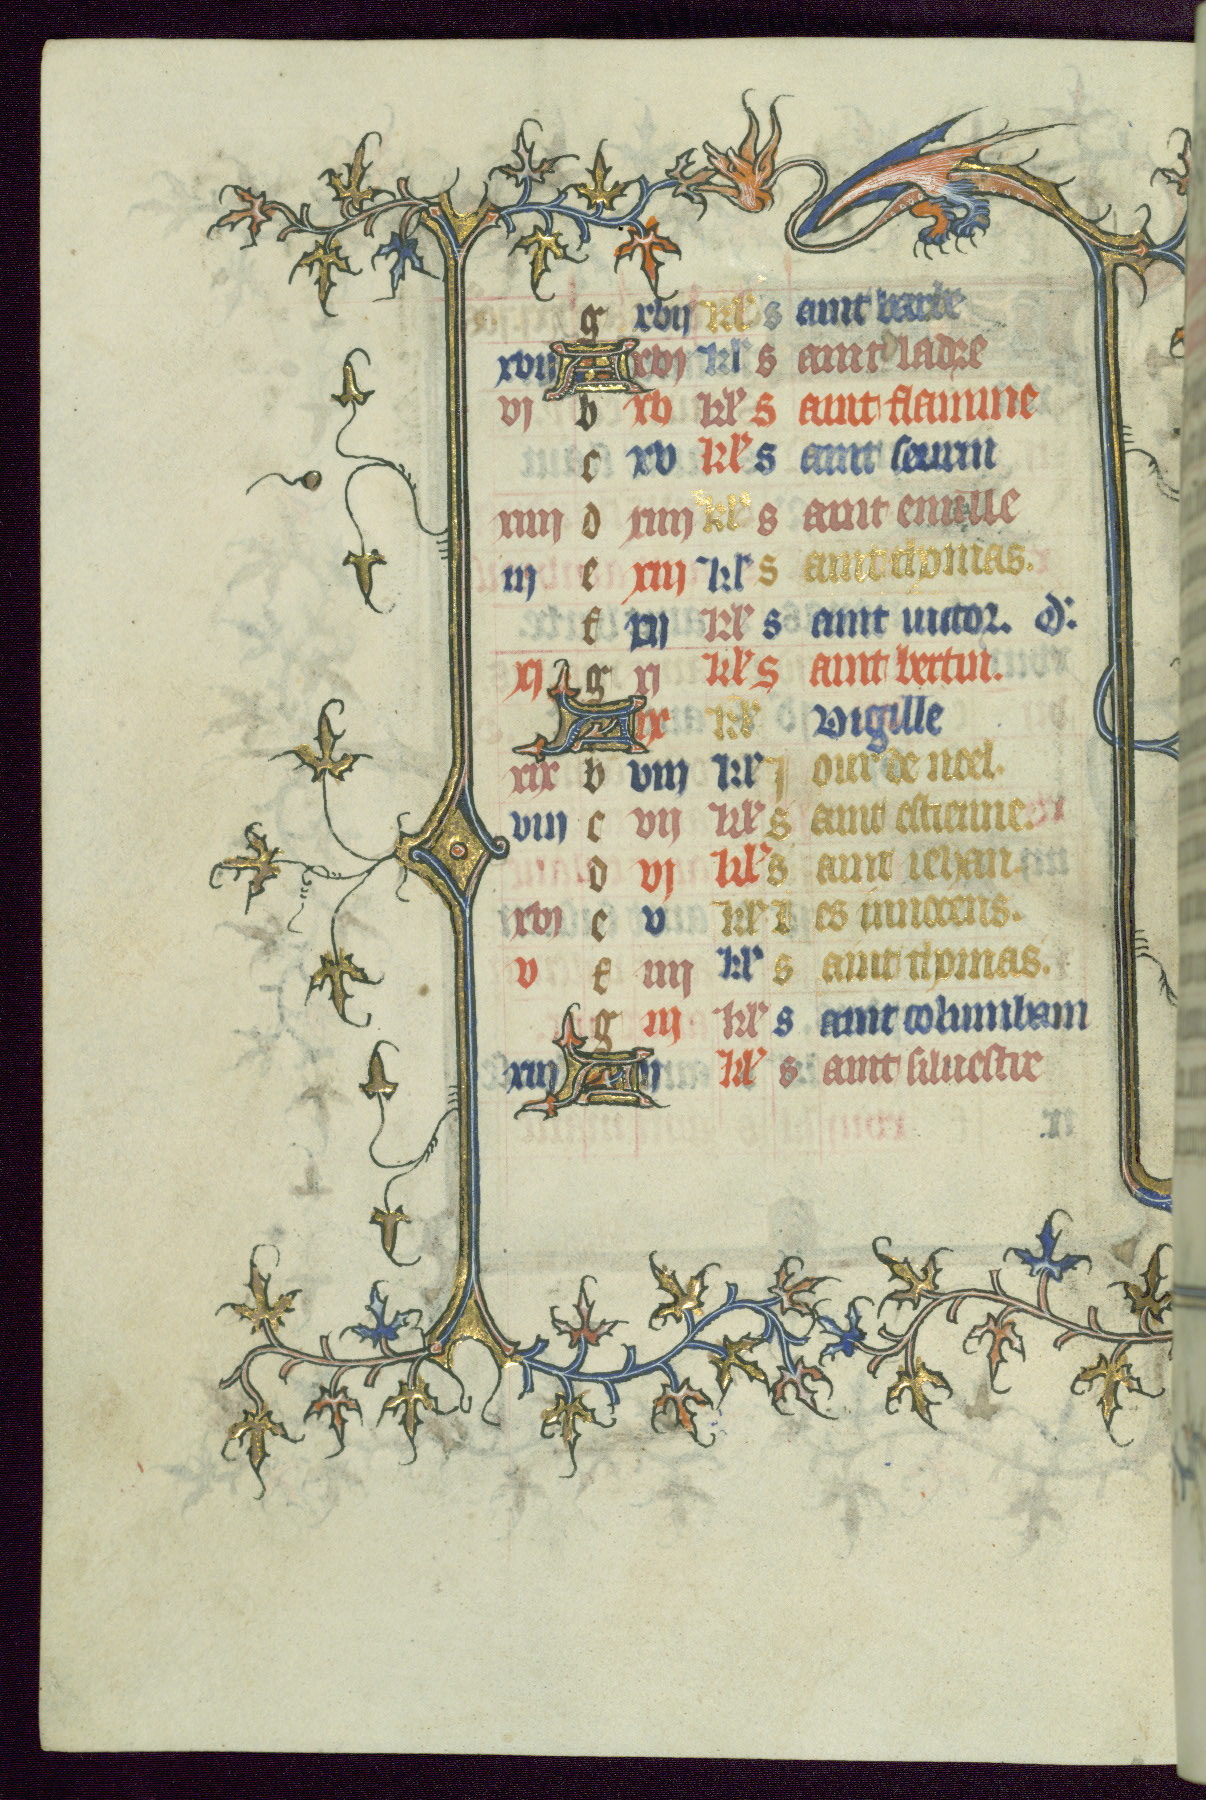 g xvij kl' s aint
xviij A xvj kl' s aint ladre
vj b xv kl' s aint flamine
c xv kl' s aint seurin
xiiij d xiiij kl' s aint
iij e xiij kl' s aint thomas.
f xij kl' s aint uictor. d:
xj g xj kl' s aint bertin.
A ix kl' Vigille
xix b viij kl' J our de noel.
viij c vij kl' s aint estienne.
d vj kl' s aint iehan.
xvj e v kl' L es innocens.
v f iiij kl' s aint thomas.
g iij kl' s aint columbam
xiij A ij kl' s aint siluestre